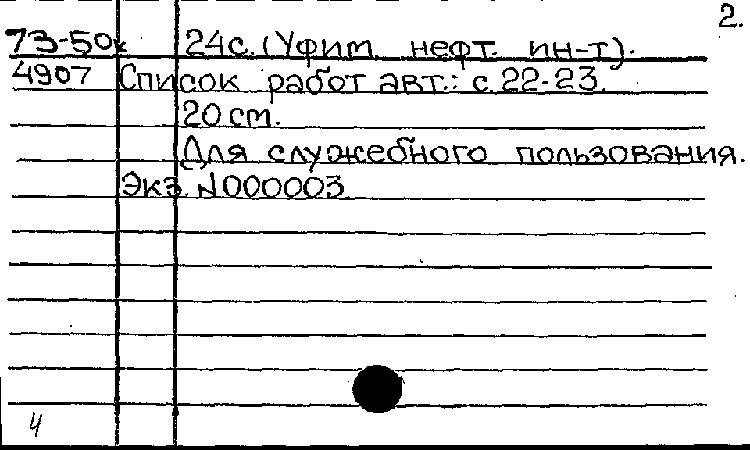 2.
73-50к 24с. (Уфим. нефт. ин-т).
4907 Список работ авт.: с. 22-23.
20 см.
Для служебного пользования.
Экз. №000003.
4